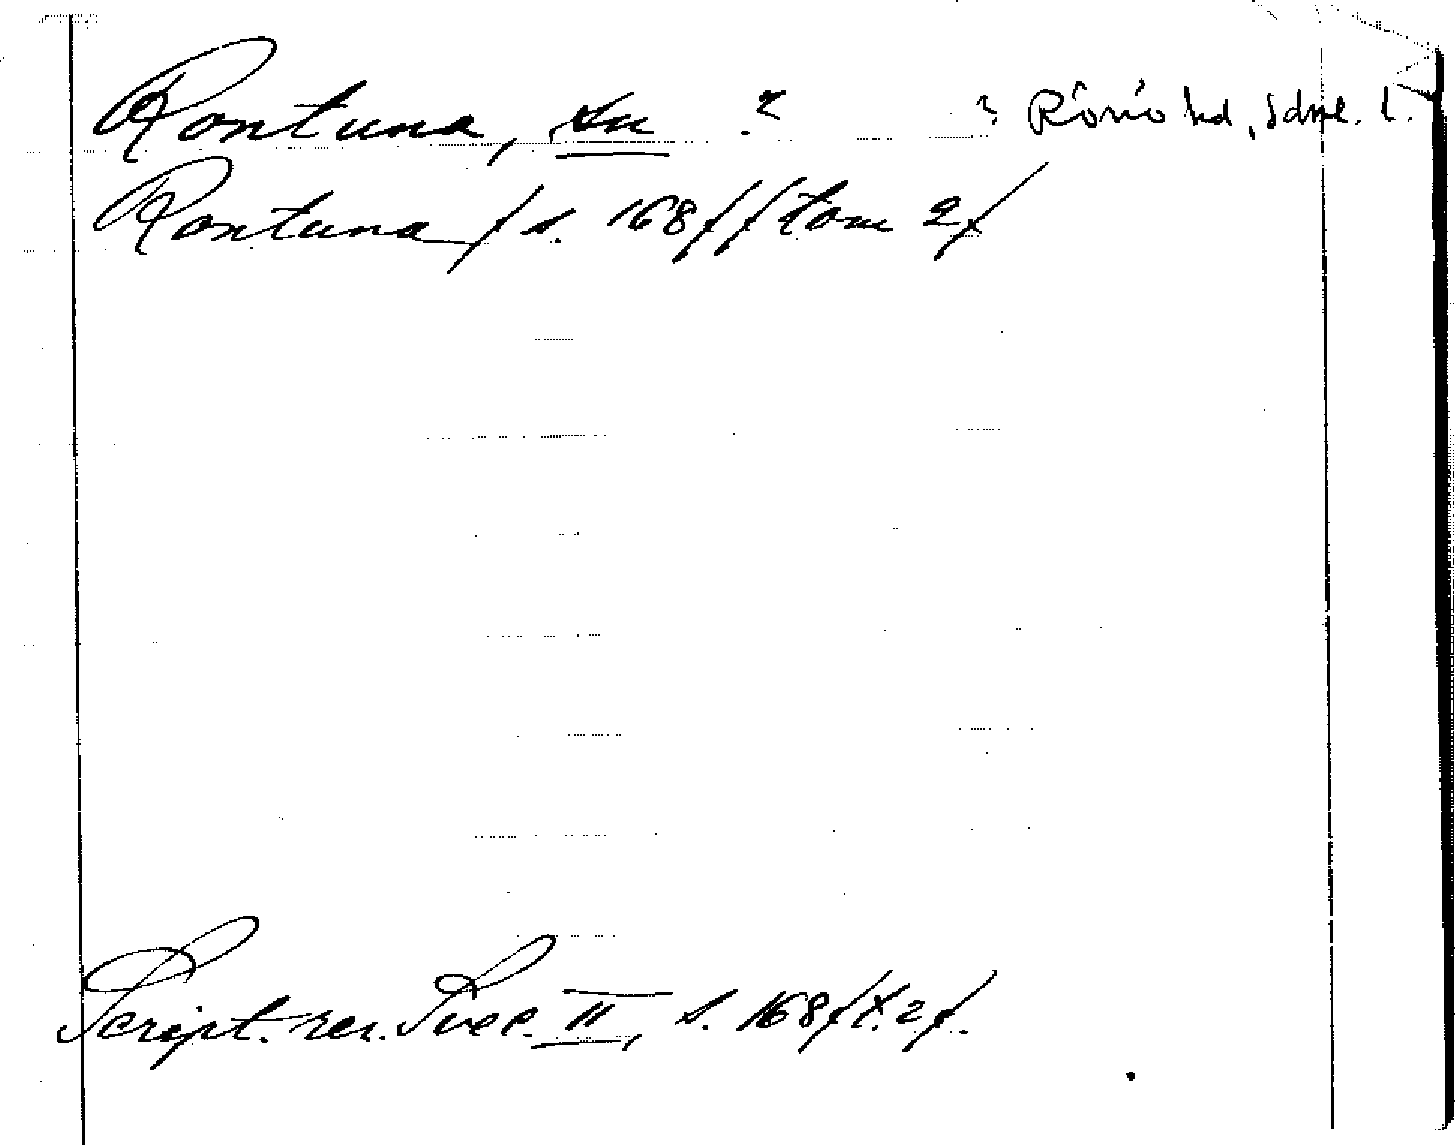 Rontuna, sn ? ? Rönö hd, Sdml. l.
Rontuna / s. 168 / / tom 2 /
Script. rer. Svec. II, s. 168 / t. 2 /.